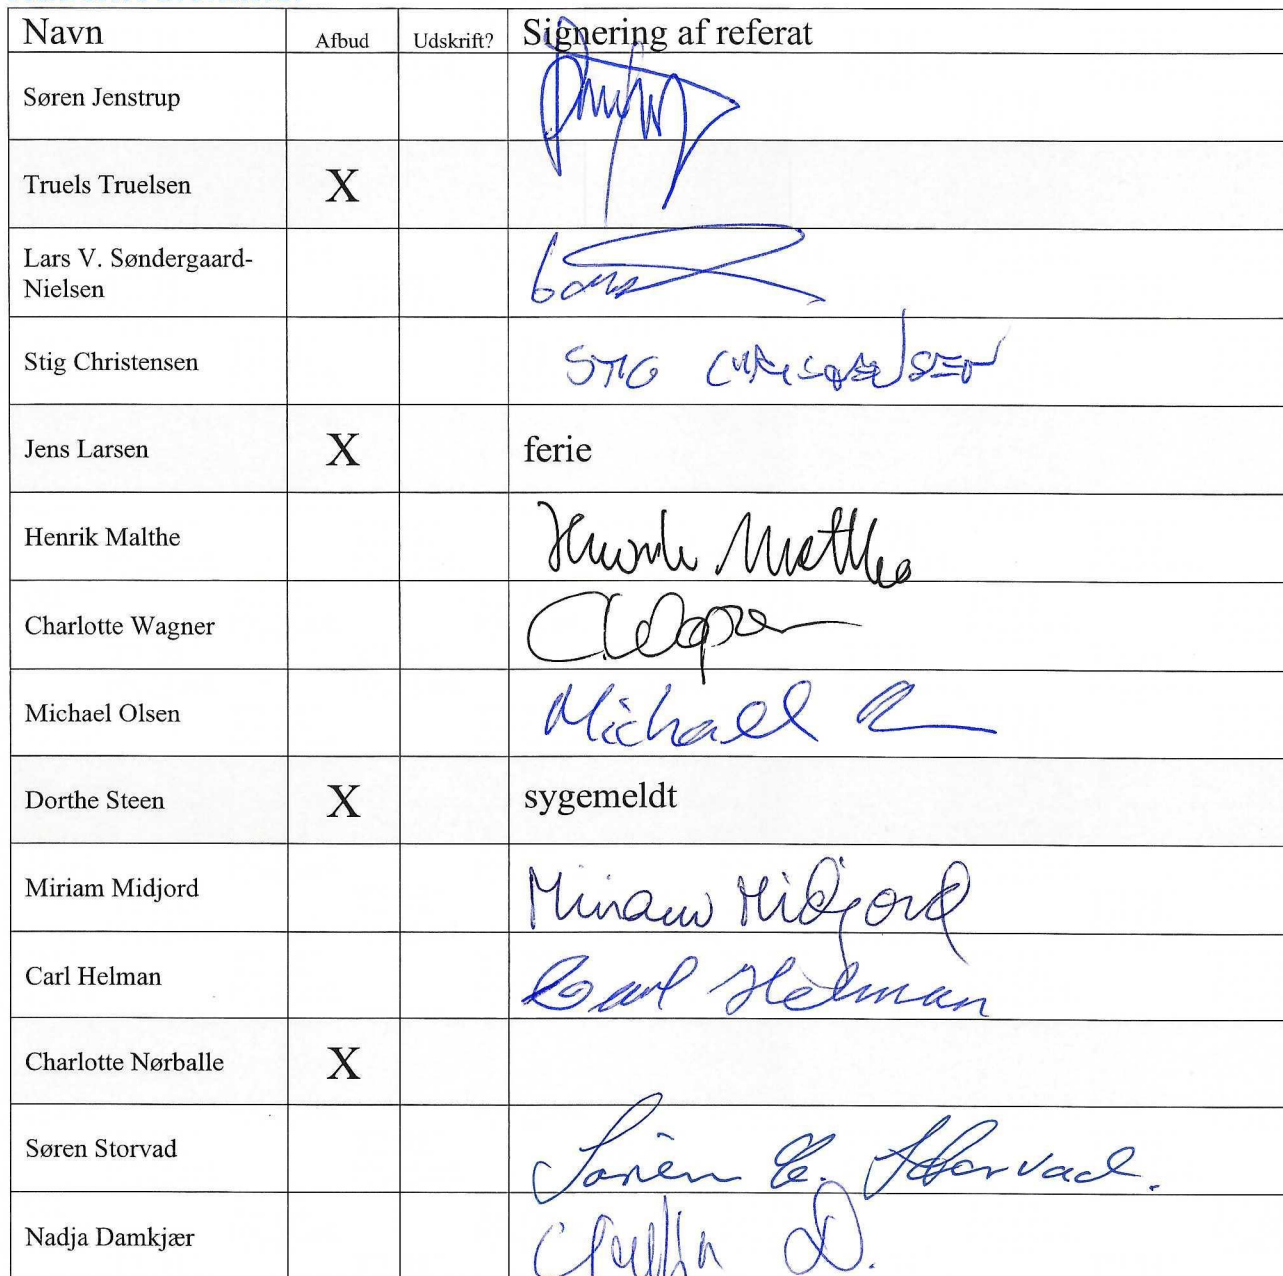 Navn Afbud Udskrift? Signering af referat
Søren Jenstrup
Truels Truelsen X
Lars V. Søndergaard-
Nielsen
Lars
Stig Christensen STIG CHRISTENSEN
Jens Larsen X ferie
Henrik Malthe Henrik Malthe
Charlotte Wagner C Wagner
Michael Olsen Michael
Dorthe Steen X sygemeldt
Miriam Midjord Miriam Midjord
Carl Helman Carl Helman
Charlotte Nørballe X
Søren Storvad Søren E. Storvad.
Nadja Damkjær D.